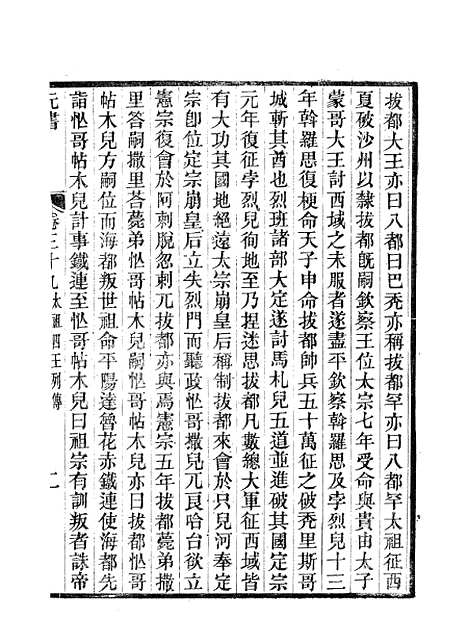 拔都大王亦曰八都曰巴禿亦稱拔都罕亦曰八都罕太祖征西
夏破沙州以隸拔都旣嗣欽察王位太宗七年受命與貴由太子
蒙哥大王討西域之未服者遂盡平欽察斡羅思及孛烈兒十三
年斡羅思復梗命天子申命拔都帥兵五十萬征之破禿里斯哥
城斬其酋也烈班諸部大定遂討馬札兒五道並進破其國定宗
元年復征孛烈兒徇地至乃捏迷思拔都凡數總大軍征西域皆
有大功其國地絕遠太宗崩皇后稱制拔都來會於只兒河奉定
宗卽位定宗崩皇后立失烈門而聽政忙哥撒兒兀良哈台欲立
憲宗復會於阿刺脫忽剌兀拔都亦與焉憲宗五年拔都薨弟撒
里答嗣撒里荅薨弟忙哥帖木兒嗣忙哥帖木兒亦曰拔都忙哥
帖木兒方嗣位而海都叛世祖命平陽達魯花赤鐵連使海都先
詣忙哥帖木兒計事鐵連至忙哥帖木兒曰祖宗有訓叛者誅帝
元書 卷三十九 太祖四王列傳 二